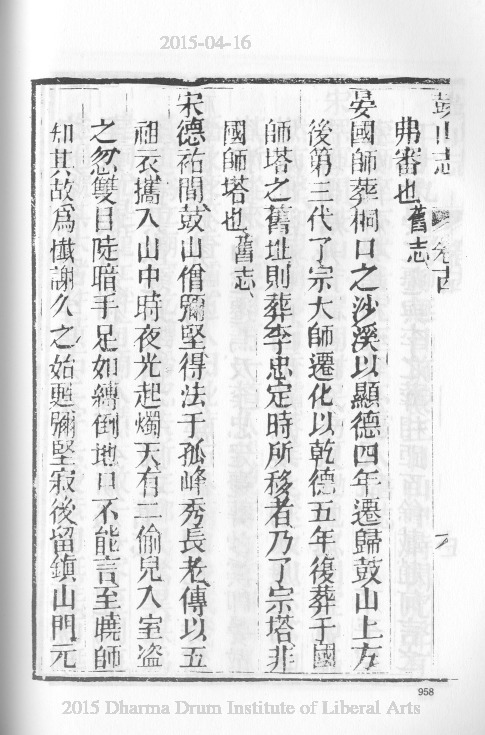 2015-04-16
鼓山志
卷十四
八
弗審也舊志
晏國師葬桐口之沙溪以顯德四年遷歸鼓山上方
後第三代了宗大師遷化以乾德五年復葬于國
師塔之舊址則葬李忠定時所移者乃了宗塔非
國師塔也舊志
宋德祐間鼓山僧彌堅得法于孤峰秀長老傳以五
祖衣攜入山中時夜光起燭天有二偷兒入室盜
之忽雙目陡暗手足如縛倒地口不能言至曉師
知其故為懺謝久之始甦彌堅寂後留鎮山門元
958
2015 Dharma Drum Institute of Liberal Arts